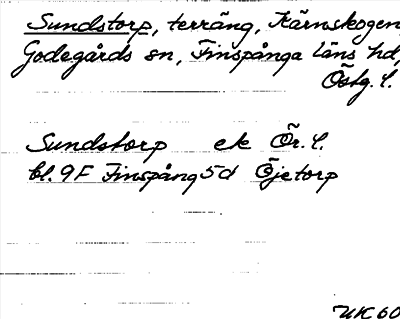 Sundstorp, terräng, Kärnskogen,
Godegårds sn, Finspånga läns hd,
Östg. l.
Sundstorp ek Ör. l.
bl. 9F Finspång 5d Öjetorp
UK 60